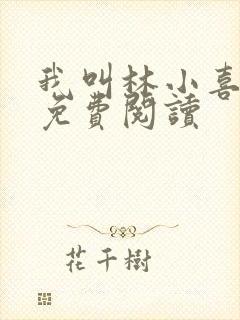 我叫林小喜
免費閱讀
花千樹